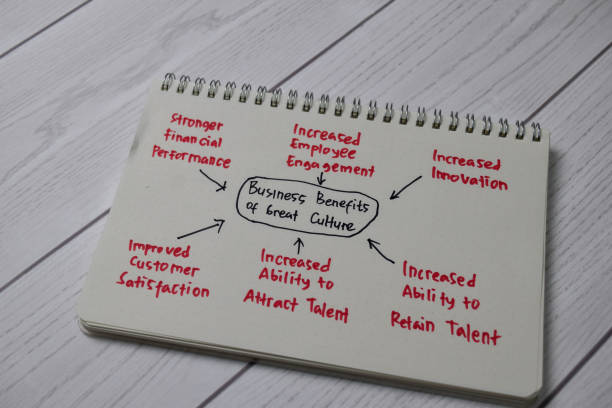 Stronger
Financial
Performance
Increased
Employee
Engagement
Increased
Innovation
Business Benefits
of Great Culture
Improved
Customer
Satisfaction
Increased
Ability to
Attract Talent
Increased
Ability to
Retain Talent